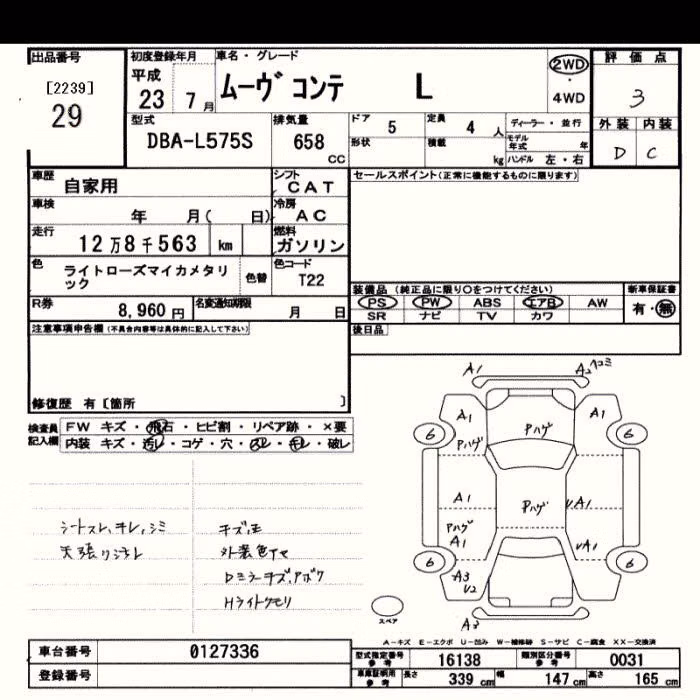 出品番号 初度登録年月 車名・グレード 評価点
[2239] 平成 ムーヴ コンテ L 2WD
29 23 7月 ・ 3
4WD
型式 排気量 ドア 5 定員 4人 ディーラー・並行 外装 内装
DBA-L575S 658 CC 形状 積載 kg モデル年式 年 D C
ハンドル 左・右
車歴 自家用 シフト CAT セールスポイント(正常に機能するものに限ります)
車検 年 月( 日) 冷房 AC
走行 12万8千563 km 燃料 ガソリン
色 ライトローズマイカメタリック 色替 色コード T22
装備品 (純正品に限り○をつけてください) 新車保証書
R券 8,960円 名変通知期限 月 日 PS PW ABS エアB AW 有・無
SR ナビ TV カワ
注意事項申告欄(不具合内容等は具体的に記入して下さい) 後日品
修復歴 有〔箇所 〕
検査員記入欄 FW キズ・飛石・ヒビ割・リペア跡・×要
内装 キズ・汚レ・コゲ・穴・スレ・キレ・破レ
シートスレ、キレ、シミ
天張リヨゴレ
キズ、凹
外装色アセ
Dミラーキズ、アポウ
Hライトクモリ
A1 A2 ヘコミ
A1 A1
6 Pハゲ Pハゲ 6
A1 Pハゲ UA1
Pハゲ
A1 UA1
6 6
A3
U2
スペア A2
A-キズ E-エクボ U-凹み W-補修跡 S-サビ C-腐食 XX-交換済
車台番号 0127336 型式指定番号 参考 16138 類別区分番号 参考 0031
登録番号 車庫証明用 参考 長さ 339 cm 幅 147 cm 高さ 165 cm